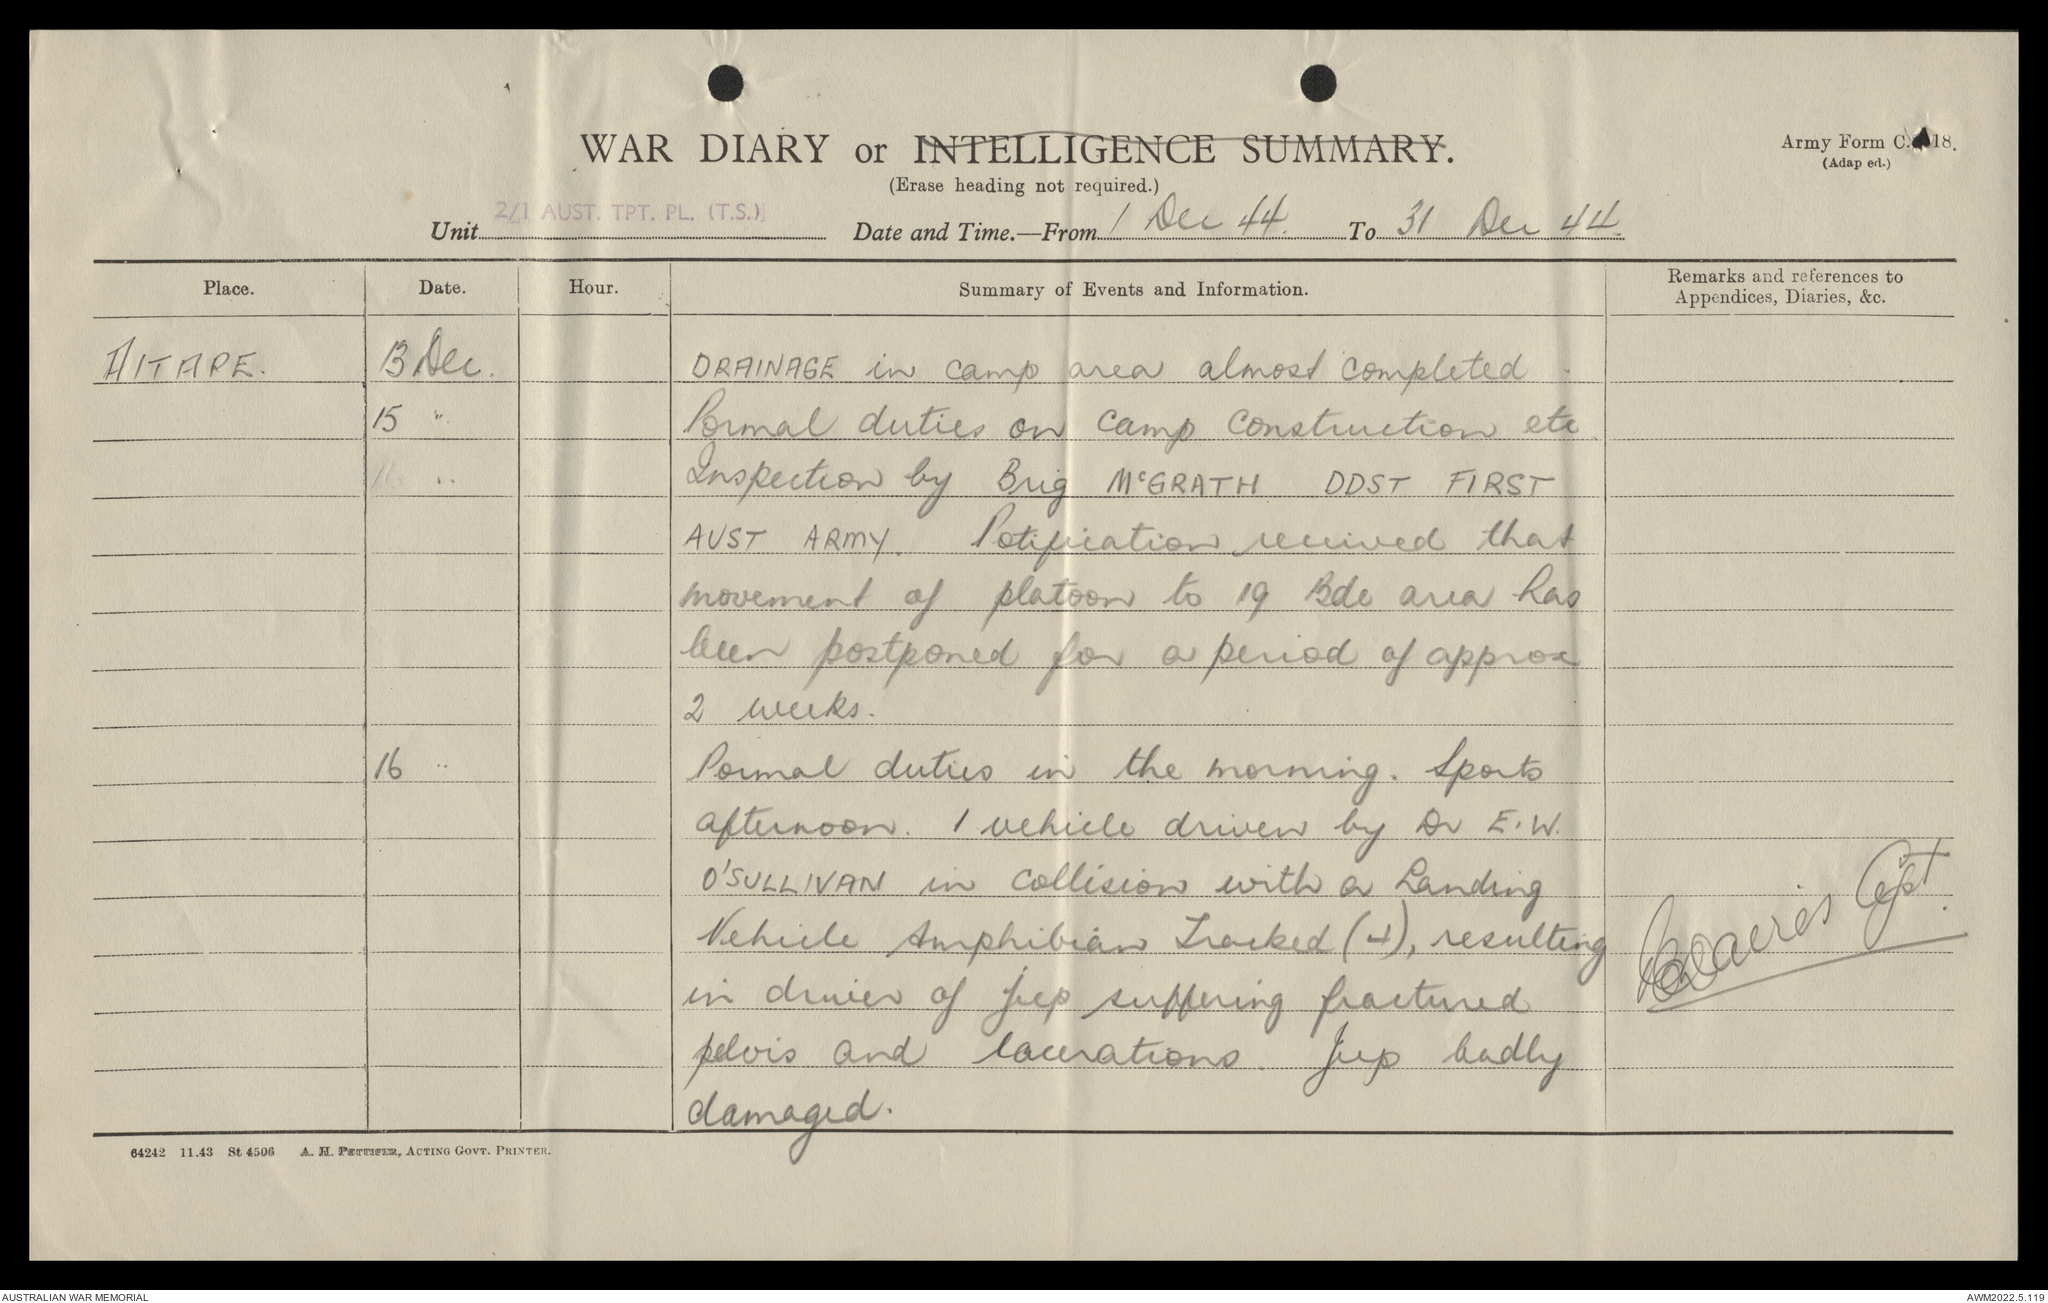 WAR DIARY or INTELLIGENCE SUMMARY.
Army Form C. 18.
(Adapted.)
(Erase heading not required.)
Unit 2/1 AUST. TPT. PL. (T.S.) Date and Time.—From 1 Dec 44. To 31 Dec 44.
Place. Date. Hour. Summary of Events and Information. Remarks and references to Appendices, Diaries, &c.
AITAPE. 13 Dec. DRAINAGE in camp area almost completed.
15 " Normal duties on camp construction etc.
16 " Inspection by Brig McGRATH DDST FIRST
AUST ARMY. Notification received that
movement of platoon to 19 Bde area has
been postponed for a period of approx
2 weeks.
16 " Normal duties in the morning. Sports
afternoon. 1 vehicle driven by Dr E.W.
O'SULLIVAN in collision with a Landing
Vehicle Amphibian Tracked (4), resulting
in driver of jeep suffering fractured
pelvis and lacerations. Jeep badly
damaged.
Capt.
64242 11.43 St 4506 A. H. PETTIFER, ACTING GOVT. PRINTER.
AUSTRALIAN WAR MEMORIAL
AWM2022.5.119